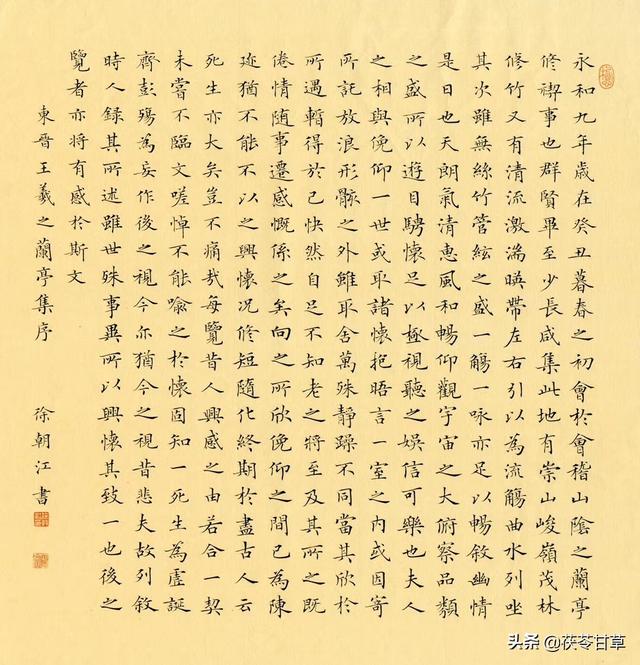 永和九年歲在癸丑暮春之初會於會稽山陰之蘭亭
修禊事也群賢畢至少長咸集此地有崇山峻嶺茂林
修竹又有清流激湍暎帶左右引以為流觴曲水列坐
其次雖無絲竹管絃之盛一觴一咏亦足以暢敘幽情
是日也天朗氣清惠風和暢仰觀宇宙之大俯察品類
之盛所以遊目騁懷足以極視聽之娛信可樂也夫人
之相與俛仰一世或取諸懷抱晤言一室之內或因寄
所託放浪形骸之外雖取舍萬殊靜躁不同當其欣於
所遇暫得於己快然自足不知老之將至及其所之既
倦情随事遷感慨係之矣向之所欣俛仰之間已為陳
迹猶不能不以之興懷況修短隨化終期於盡古人云
死生亦大矣豈不痛哉每覽昔人興感之由若合一契
未嘗不臨文嗟悼不能喻之於懷固知一死生為虛誕
齊彭殤為妄作後之視今亦猶今之視昔悲夫故列敘
時人錄其所述雖世殊事異所以興懷其致一也後之
覽者亦將有感於斯文
東晉王羲之蘭亭集序
徐朝江書
头条 @茯苓甘草